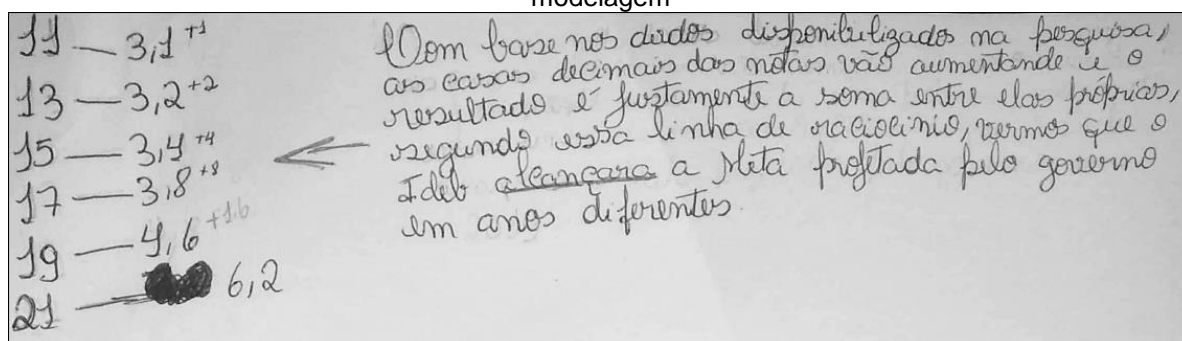 modelagem
11 — 3,1 +1
13 — 3,2 +2
15 — 3,4 +4
17 — 3,8 +8
19 — 4,6 +1.6
21 — 6,2
Com base nos dados disponibiligados na pesquisa,
as casas decimais das notas vão aumentande e o
resultado é justamente a soma entre elas próprias,
segundo essa linha de raciocinio, vermos que o
Ideb alcançara a Meta projetada pelo governo
em anos diferentes.